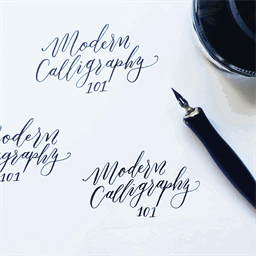 Modern
Calligraphy
101
Modern
Calligraphy
101
Modern
Calligraphy
101